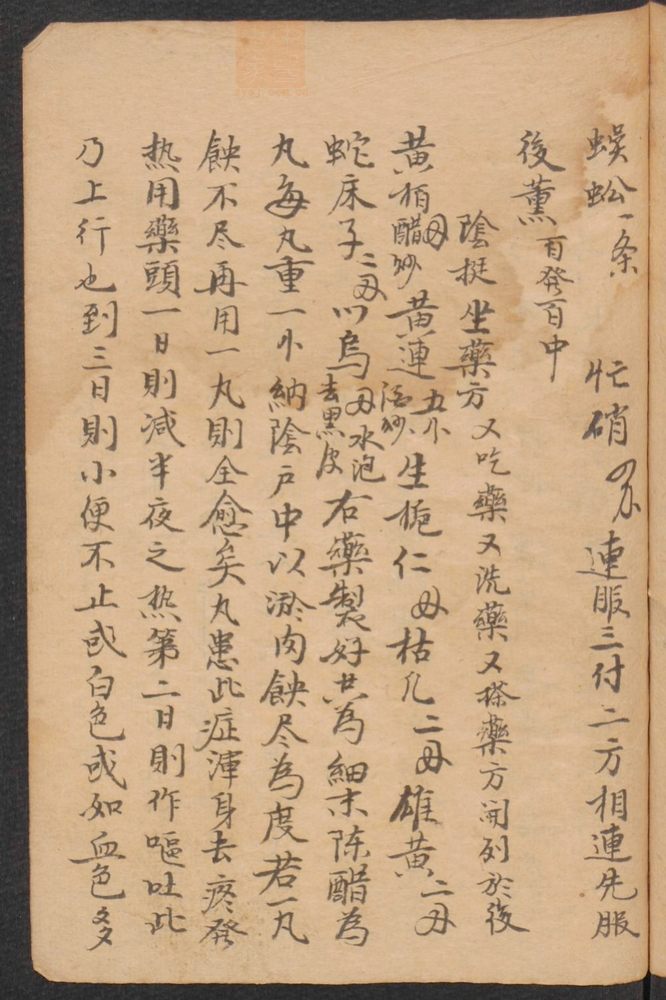 蜈蚣一条　忙硝　连服三付二方相連先服
後薰百發百中
陰挺坐藥方　又吃藥又洗藥又搽藥方開列於後
黄柏醋炒　黄連五分酒炒　生梔仁　枯凡二　雄黄二
蛇床子二　川烏水泡去黒皮　右藥製好共為細末陈醋為
丸每丸重一小納陰戸中以瘀肉蝕尽為度若一丸
蝕不尽再用一丸則全愈矣丸患此症渾身去疼發
热用藥頭一日則減半夜之热第二日則作嘔吐此
乃上行也到三日則小便不止或白色或如血色多